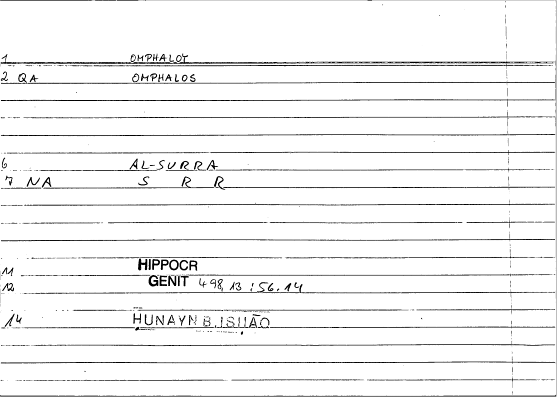 1 OMPHALOY
2 QA OMPHALOS
6 AL-SURRA
7 NA S R R
11 HIPPOCR
12 GENIT 498, 13 : 56.14
14 HUNAYN B. ISḤĀQ